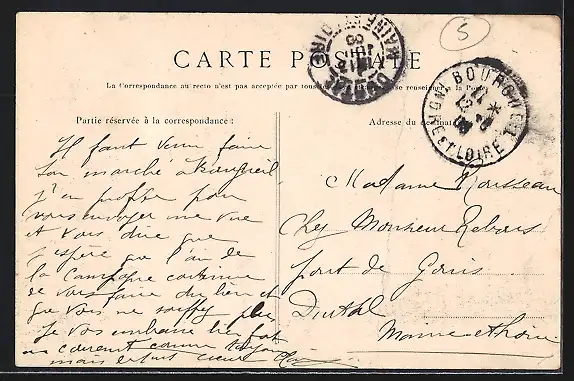 CARTE POSTALE
La Correspondance au recto n'est pas acceptée par tous se renseigner à la Poste
Partie réservée à la correspondance
Adresse du destinataire
5
MAINE-ET-LOIRE
DURTAL
BOURGUEIL
INDRE-ET-LOIRE
Il faut venir faire
son marché à Bourgueil
j'en profite pour
vous envoyer une vue
et vous dire que
j'espère que l'air de
la Campagne continue
de vous faire du bien et
que vous ne souffrez plus
Je vous embrasse bien fort
en courant comme toujours
mais de tout cœur
Madame Rousseau
Chez Monsieur
pont de
Durtal
Maine et Loire